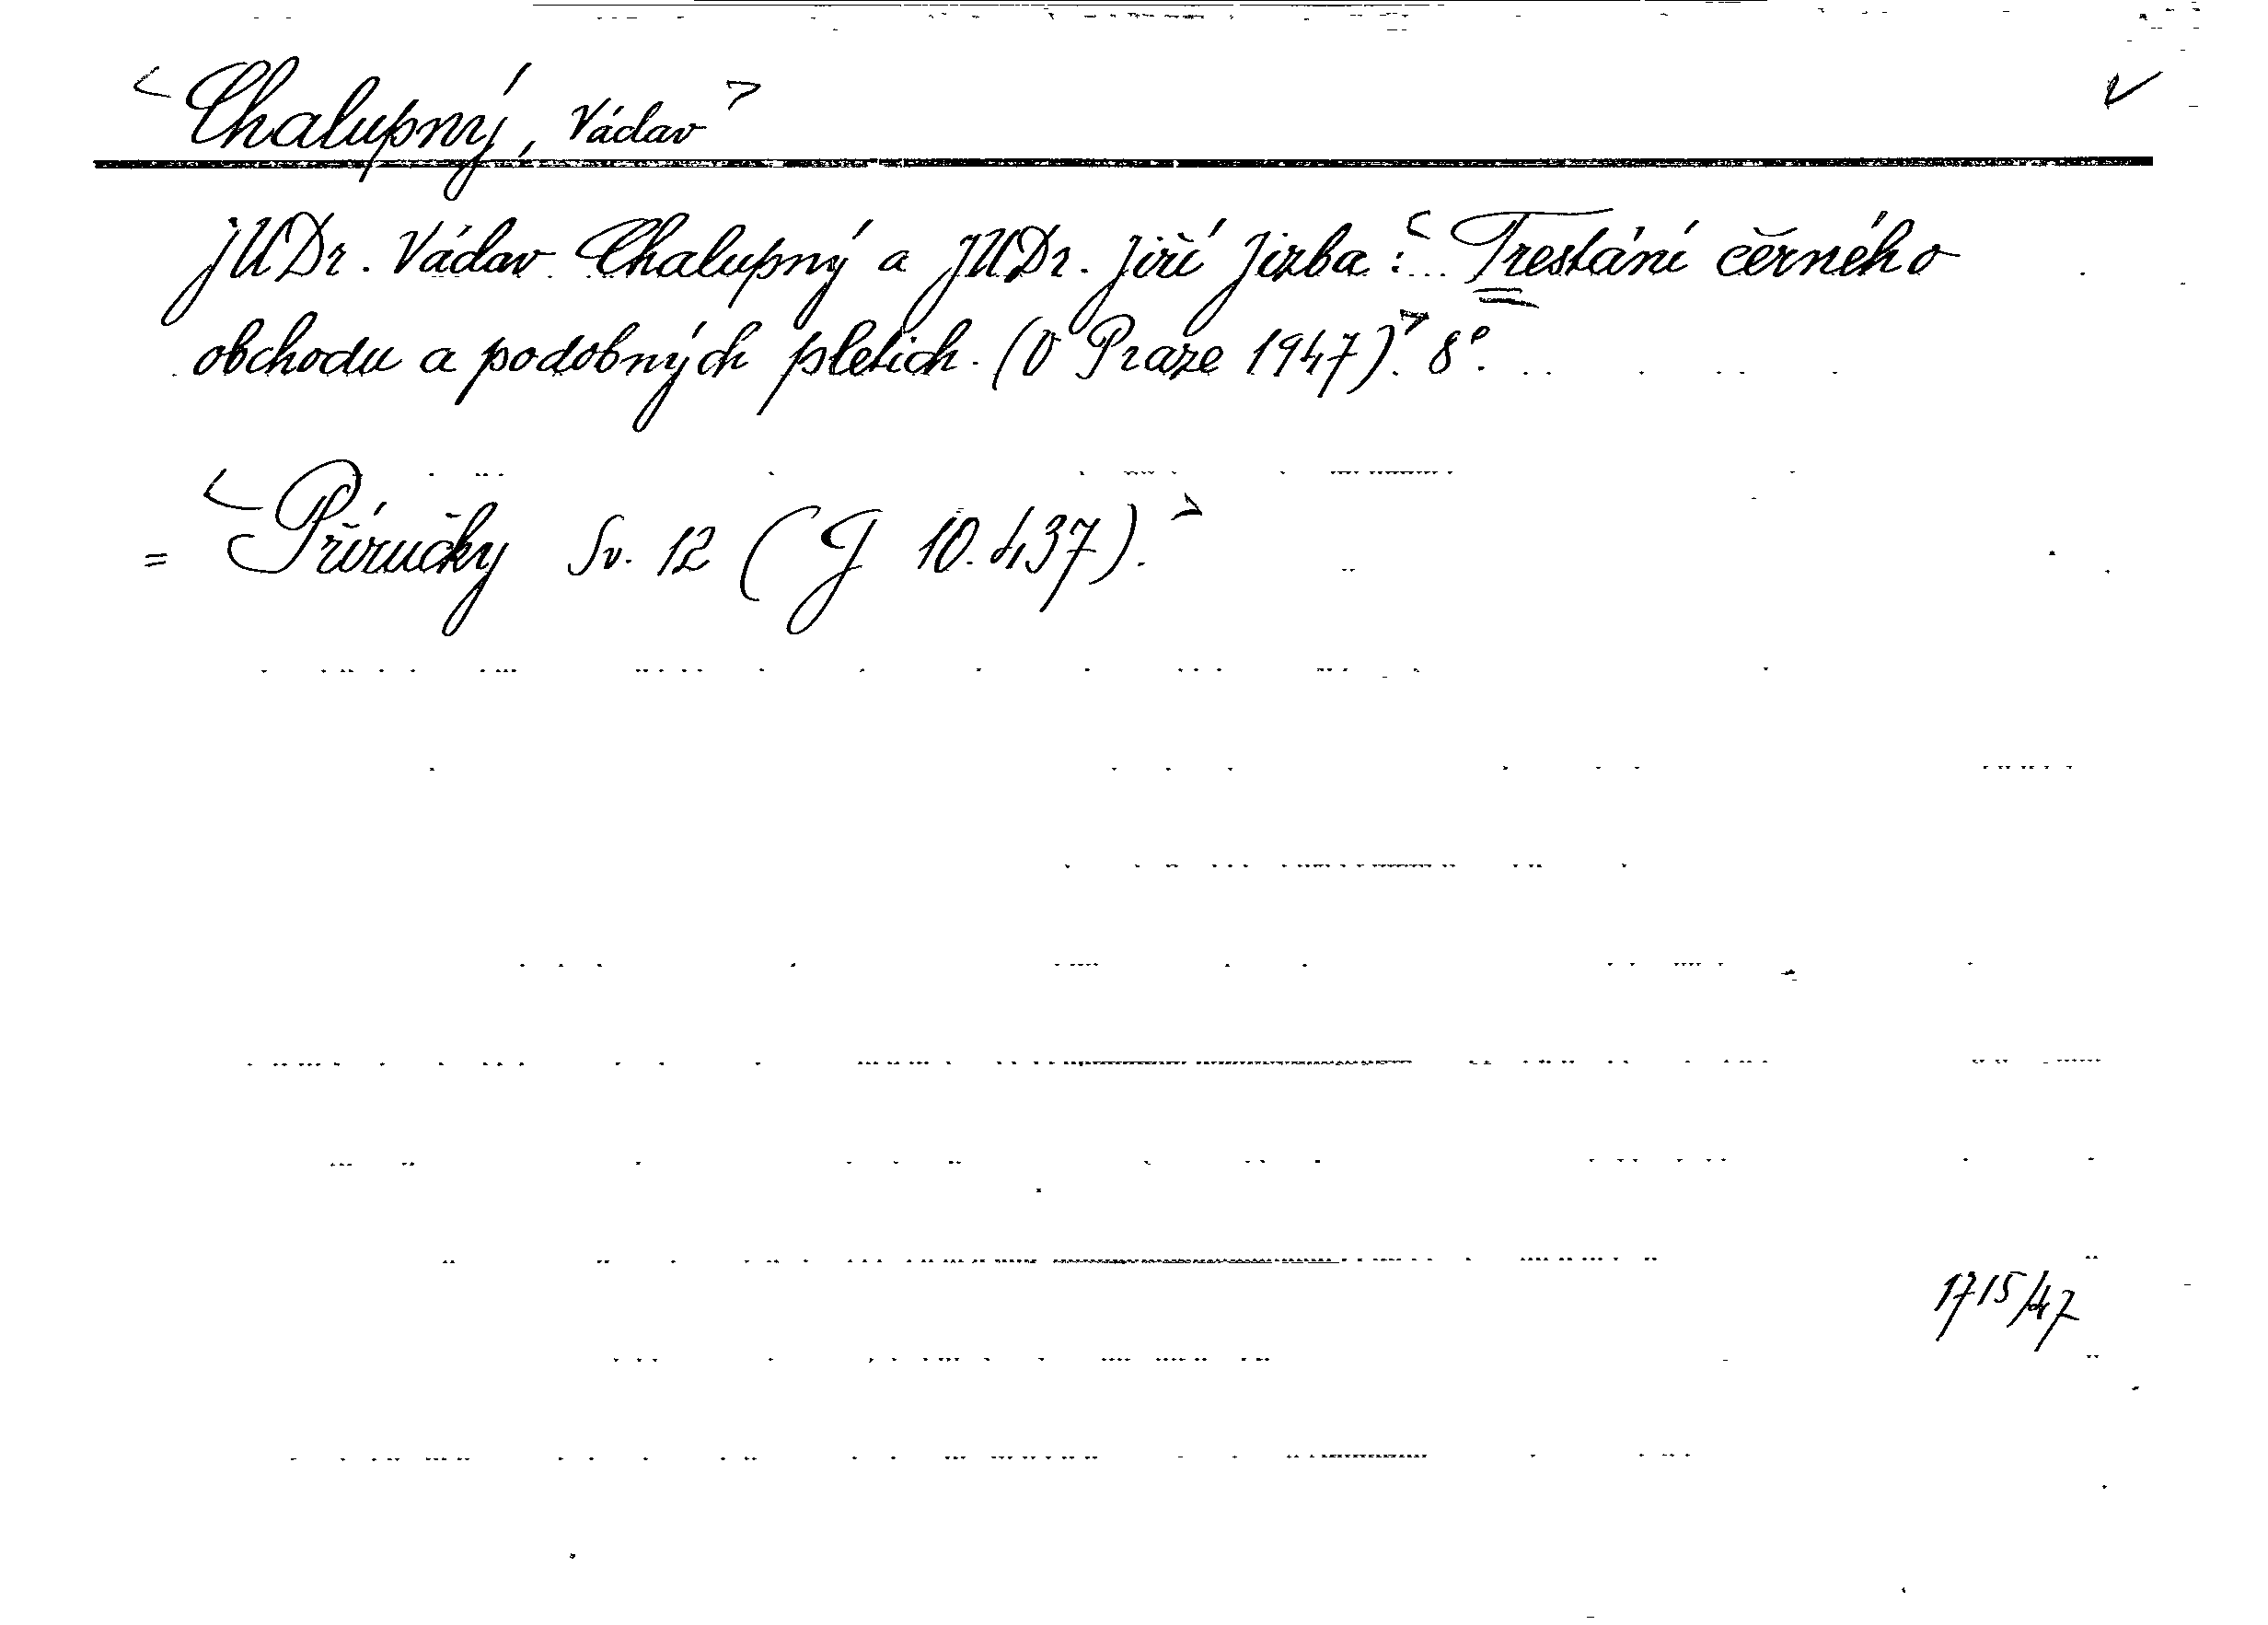 < Chalupný, Václav > ✓
JUDr. Václav Chalupný a JUDr. Jiří Jizba: < Trestání černého
obchodu a podobných pletich. (V Praze 1947). > 8°.
= < Příručky Sv. 12 (J 10.437). >
1715/47